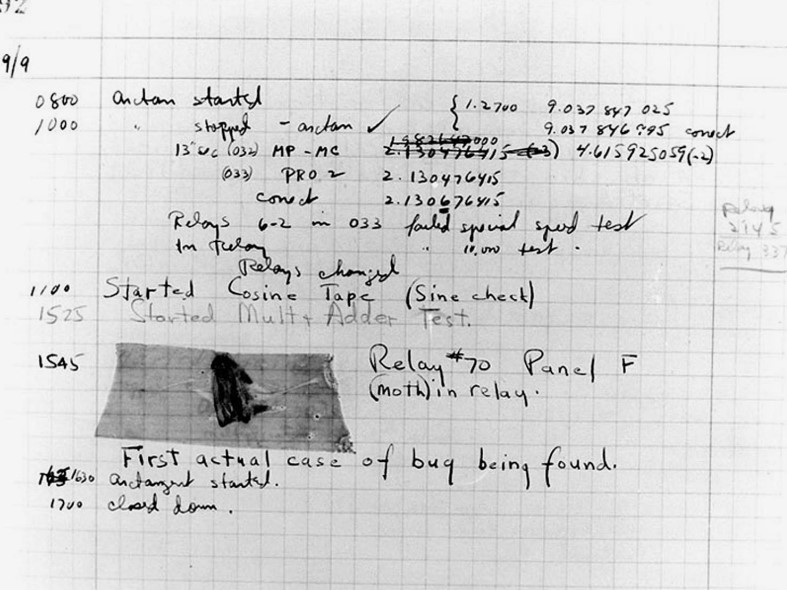 92
9/9
0800 arctan started { 1.2700 9.037 847 025
1000 " stopped - arctan ✓ 9.037 846 995 correct
13" sec (032) MP - MC 2.130476415 (-3) 4.615925059(-2)
(033) PRO 2 2.130476415
correct 2.130676415
Relays 6-2 in 033 failed special speed test
In Relay " 10,000 test .
Relays changed
1100 Started Cosine Tape (Sine check)
1525 Started Mult + Adder Test.
1545 Relay #70 Panel F
(moth) in relay.
First actual case of bug being found.
1630 arctangent started.
1700 closed down .
Relay
2145
Relay 337